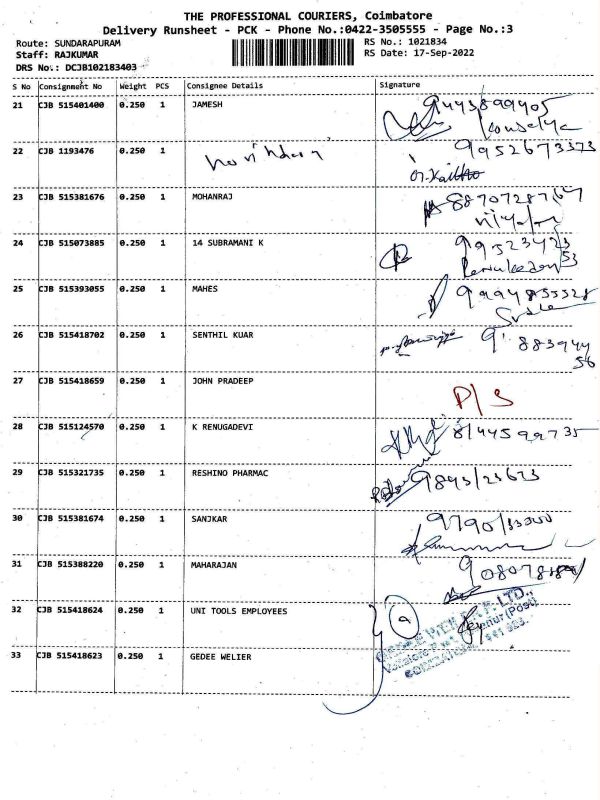 THE PROFESSIONAL COURIERS, Coimbatore
Delivery Runsheet - PCK - Phone No.:0422-3505555 - Page No.:3
Route: SUNDARAPURAM RS No.: 1021834
Staff: RAJKUMAR RS Date: 17-Sep-2022
DRS No.: DCJB102183403
S No Consignment No Weight PCS Consignee Details Signature
21 CJB 515401400 0.250 1 JAMESH 9443899405
22 CJB 1193476 0.250 1 9952673373
23 CJB 515381676 0.250 1 MOHANRAJ 8870728764
24 CJB 515073885 0.250 1 14 SUBRAMANI K 99523423
53
25 CJB 515393055 0.250 1 MAHES 9994855528
26 CJB 515418702 0.250 1 SENTHIL KUAR 9 883944
56
27 CJB 515418659 0.250 1 JOHN PRADEEP P/S
28 CJB 515124570 0.250 1 K RENUGADEVI 8144599735
29 CJB 515321735 0.250 1 RESHINO PHARMAC 9843123673
30 CJB 515381674 0.250 1 SANJKAR
31 CJB 515388220 0.250 1 MAHARAJAN
32 CJB 515418624 0.250 1 UNI TOOLS EMPLOYEES
33 CJB 515418623 0.250 1 GEDEE WELIER